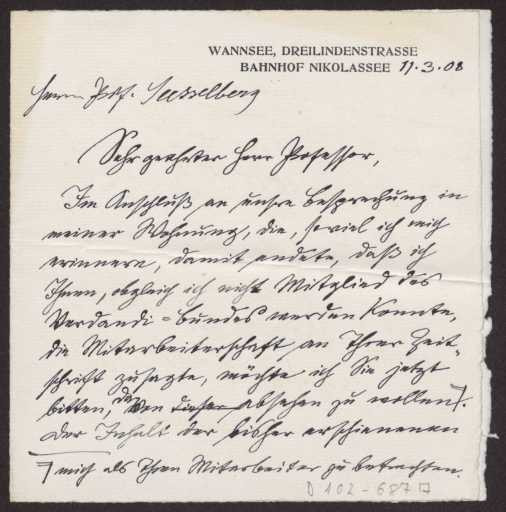 WANNSEE, DREILINDENSTRASSE
BAHNHOF NIKOLASSEE 11.3.08
Herrn Prof. Seesselberg
Sehr geehrter Herr Professor,
Im Anschluß an unsre Besprechung in
meiner Wohnung, die, soviel ich mich
erinnere, damit endete, daß ich
Ihnen, obgleich ich nicht Mitglied des
Werdandi-Bundes werden konnte,
die Mitarbeiterschaft an Ihrer Zeit-
schrift zusagte, möchte ich Sie jetzt
bitten, davon absehen zu wollen
Der Inhalt der bisher erschienenen
mich als Ihren Mitarbeiter zu betrachten.
D 102-687